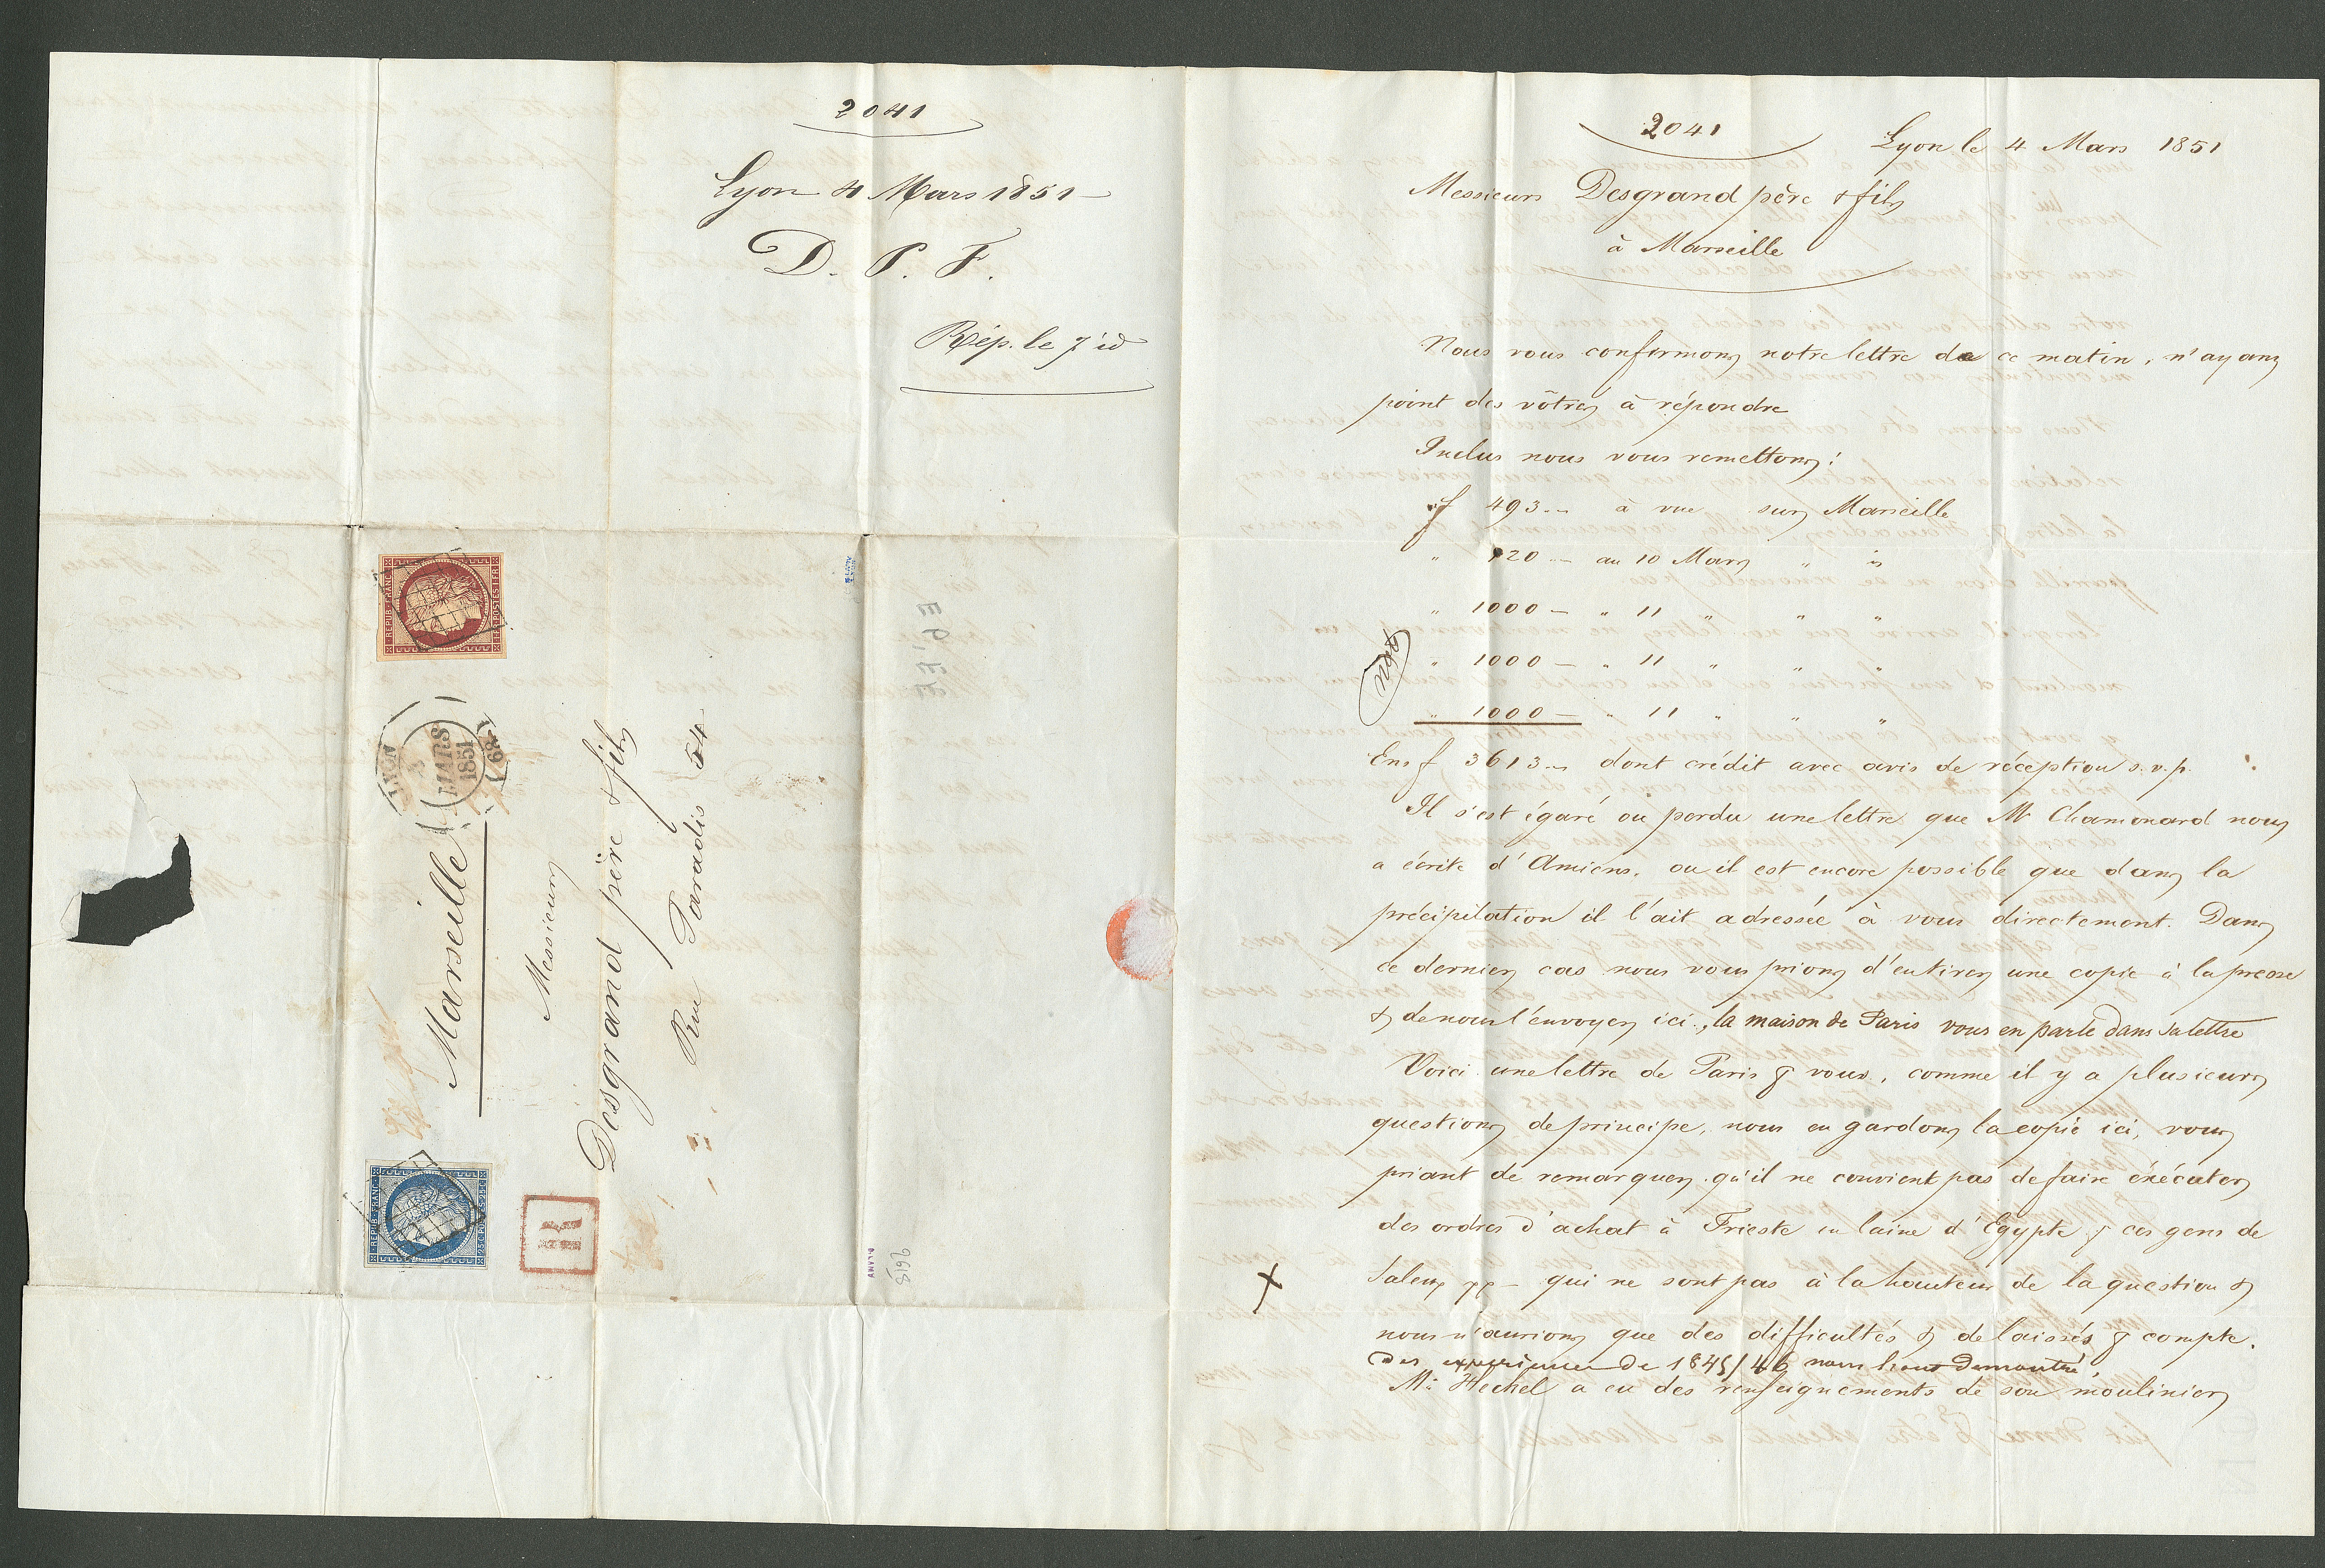 2041
Lyon 4 Mars 1851
D. P. F.
Rép. le 7 id
REPUB. FRANC.
1 F. POSTES 1 FR
LYON
MARS
1851
(68)
Marseille
Messieurs
Desgrand père & fils
Rue Paradis 54
REPUB. FRANC.
25 C. POSTES 25 C
R
2041
Lyon le 4 Mars 1851
Messieurs Desgrand père & fils
à Marseille
Nous vous confirmons notre lettre de ce matin, n'ayans
point des vôtres à répondre
Inclus nous vous remettons:
f 493.- à vue sur Marseille
" 120 - au 10 Mars " id
" 1000 - " 11 " " "
" 1000 - " 11 " " "
" 1000 - " 11 " " "
Ens f 3613.- dont crédit avec avis de réception s.v.p.
Il s'est égaré ou perdu une lettre que Mr Chamonard nous
a écrite d'Amiens, ou il est encore possible que dans la
précipitation il l'ait adressée à vous directement. Dans
ce dernier cas nous vous prions d'en tirer une copie à la presse
& de nous l'envoyer ici., la maison de Paris vous en parle dans sa lettre
Voici une lettre de Paris p vous, comme il y a plusieurs
questions de principe, nous en gardons la copie ici, vous
priant de remarquer qu'il ne convient pas de faire éxécuter
des ordres d'achat à Trieste en laine d'Egypte p ces gens de
Saleux pp - qui ne sont pas à la hauteur de la question &
nous n'aurions que des difficultés & de laissés p compte.
des experiences de 1845/46 nous l'ont demontré,
Mr Heckel a eu des renseignements de son moulinier